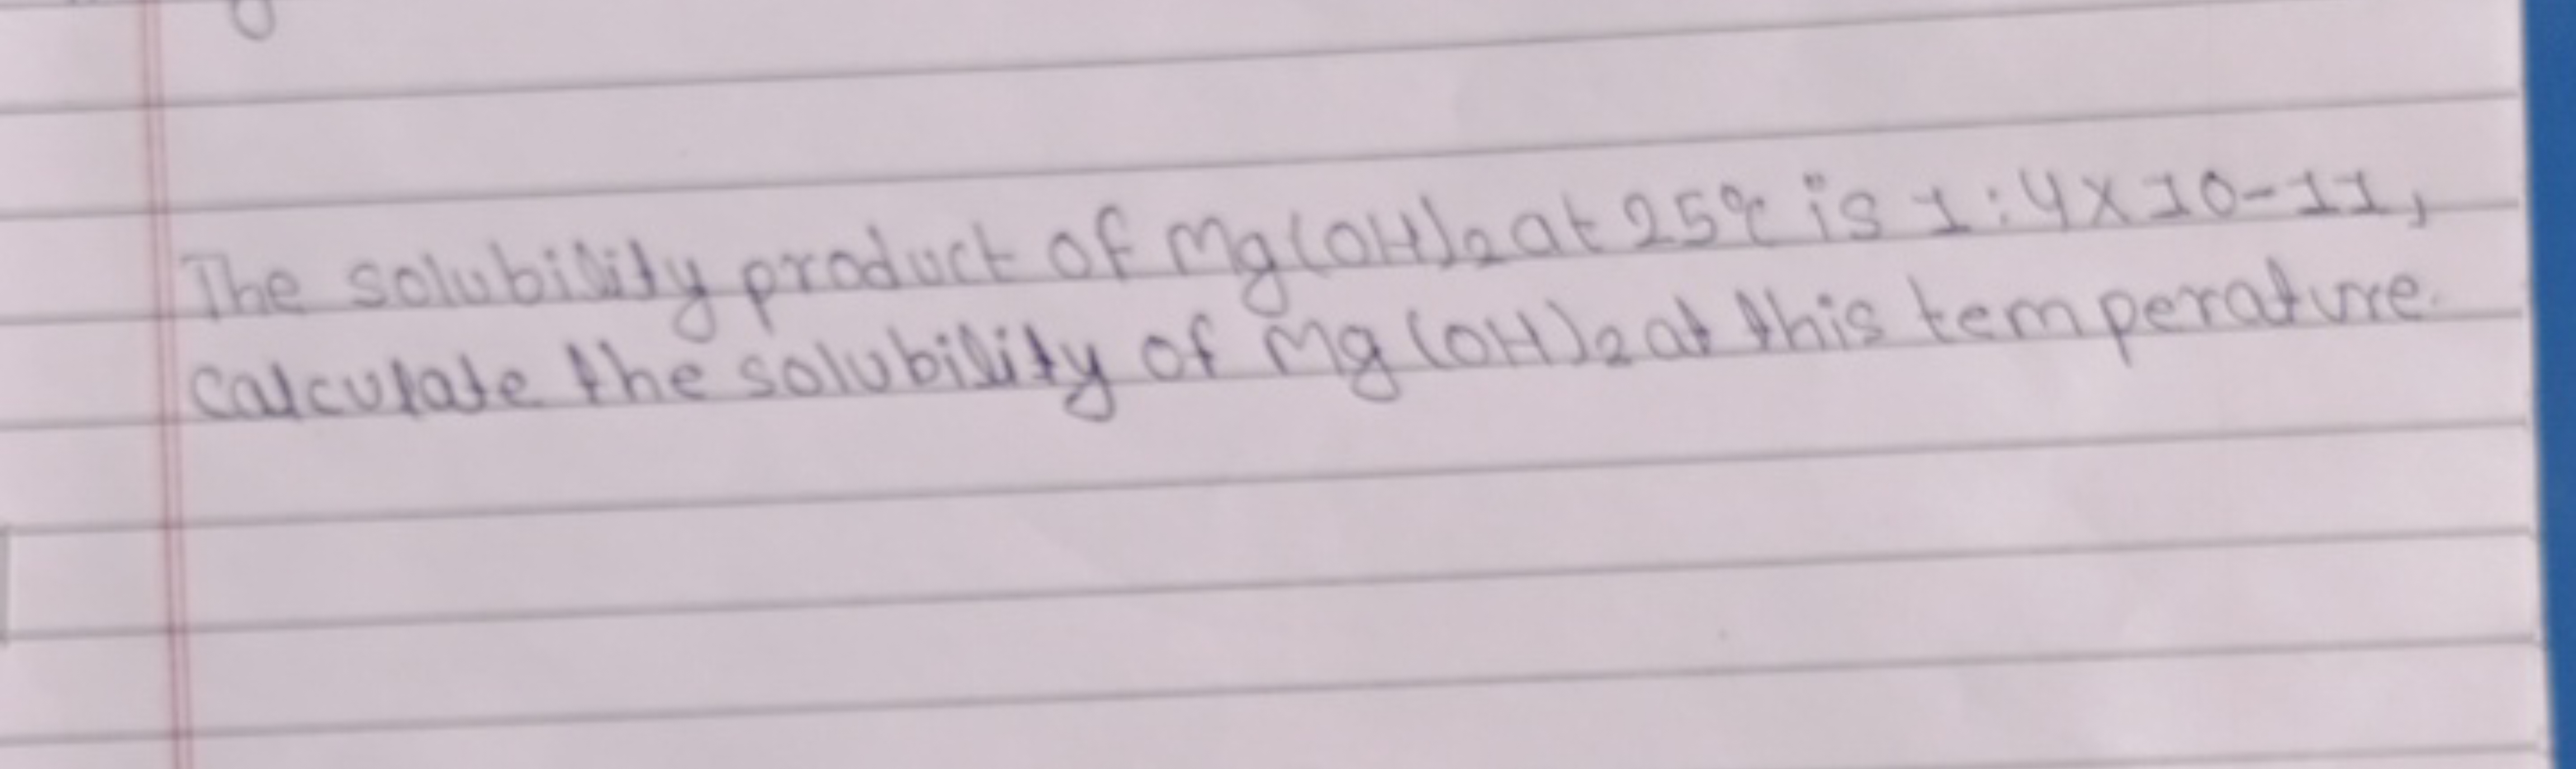 The solubility product of Mg(OH)2 at 25°C is 1:4X10-11,
Calculate the solubility of Mg(OH)2 at this temperature.